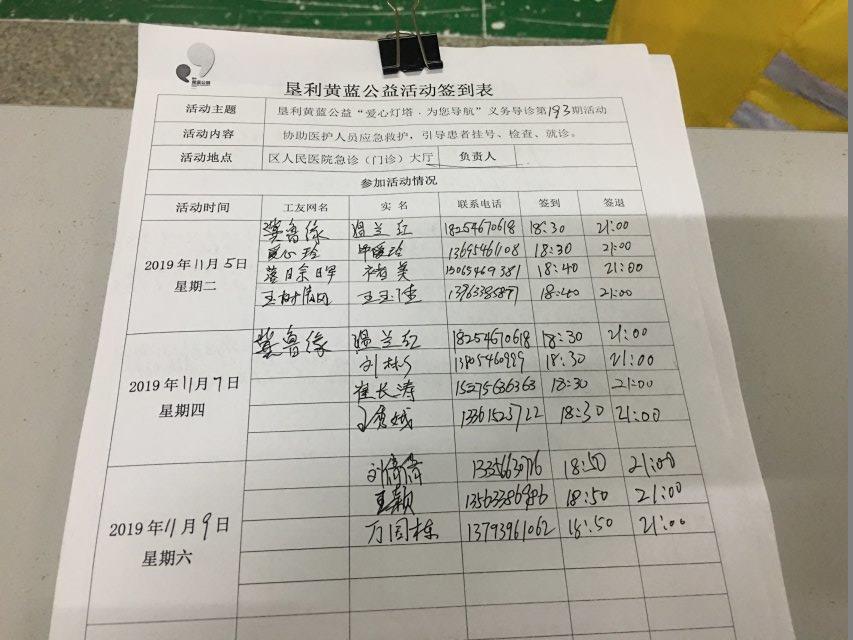 垦利黄蓝公益活动签到表
活动主题 垦利黄蓝公益“爱心灯塔．为您导航”义务导诊第193期活动
活动内容 协助医护人员应急救护，引导患者挂号、检查、就诊。
活动地点 区人民医院急诊（门诊）大厅 负责人
参加活动情况
活动时间 工友网名 实 名 联系电话 签到 签退
龚鲁缘 温兰红 18254670618 18:30 21:00
爱心玲 13695461108 18:30 21:00
2019年11月5日 落日余晖 褚美 15065469381 18:40 21:00
星期二 玉树清风 王玉佳 18:40 21:00
龚鲁缘 温兰红 18254670618 18:30 21:00
刘彬 13805460999 18:30 21:00
2019年11月7日 崔长涛 15275636363 18:30 21:00
星期四 13361523722 18:30 21:00
刘倩倩 18:50 21:00
王颖 13563386986 18:50 21:00
2019年11月9日 万国栋 13793961062 18:50 21:00
星期六